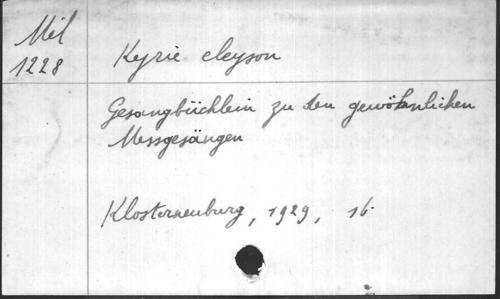 Mil
1228
Kyrie eleyson
Gesangbüchlein zu den gewöhnlichen
Messgesängen
Klosterneuburg, 1929, 16.